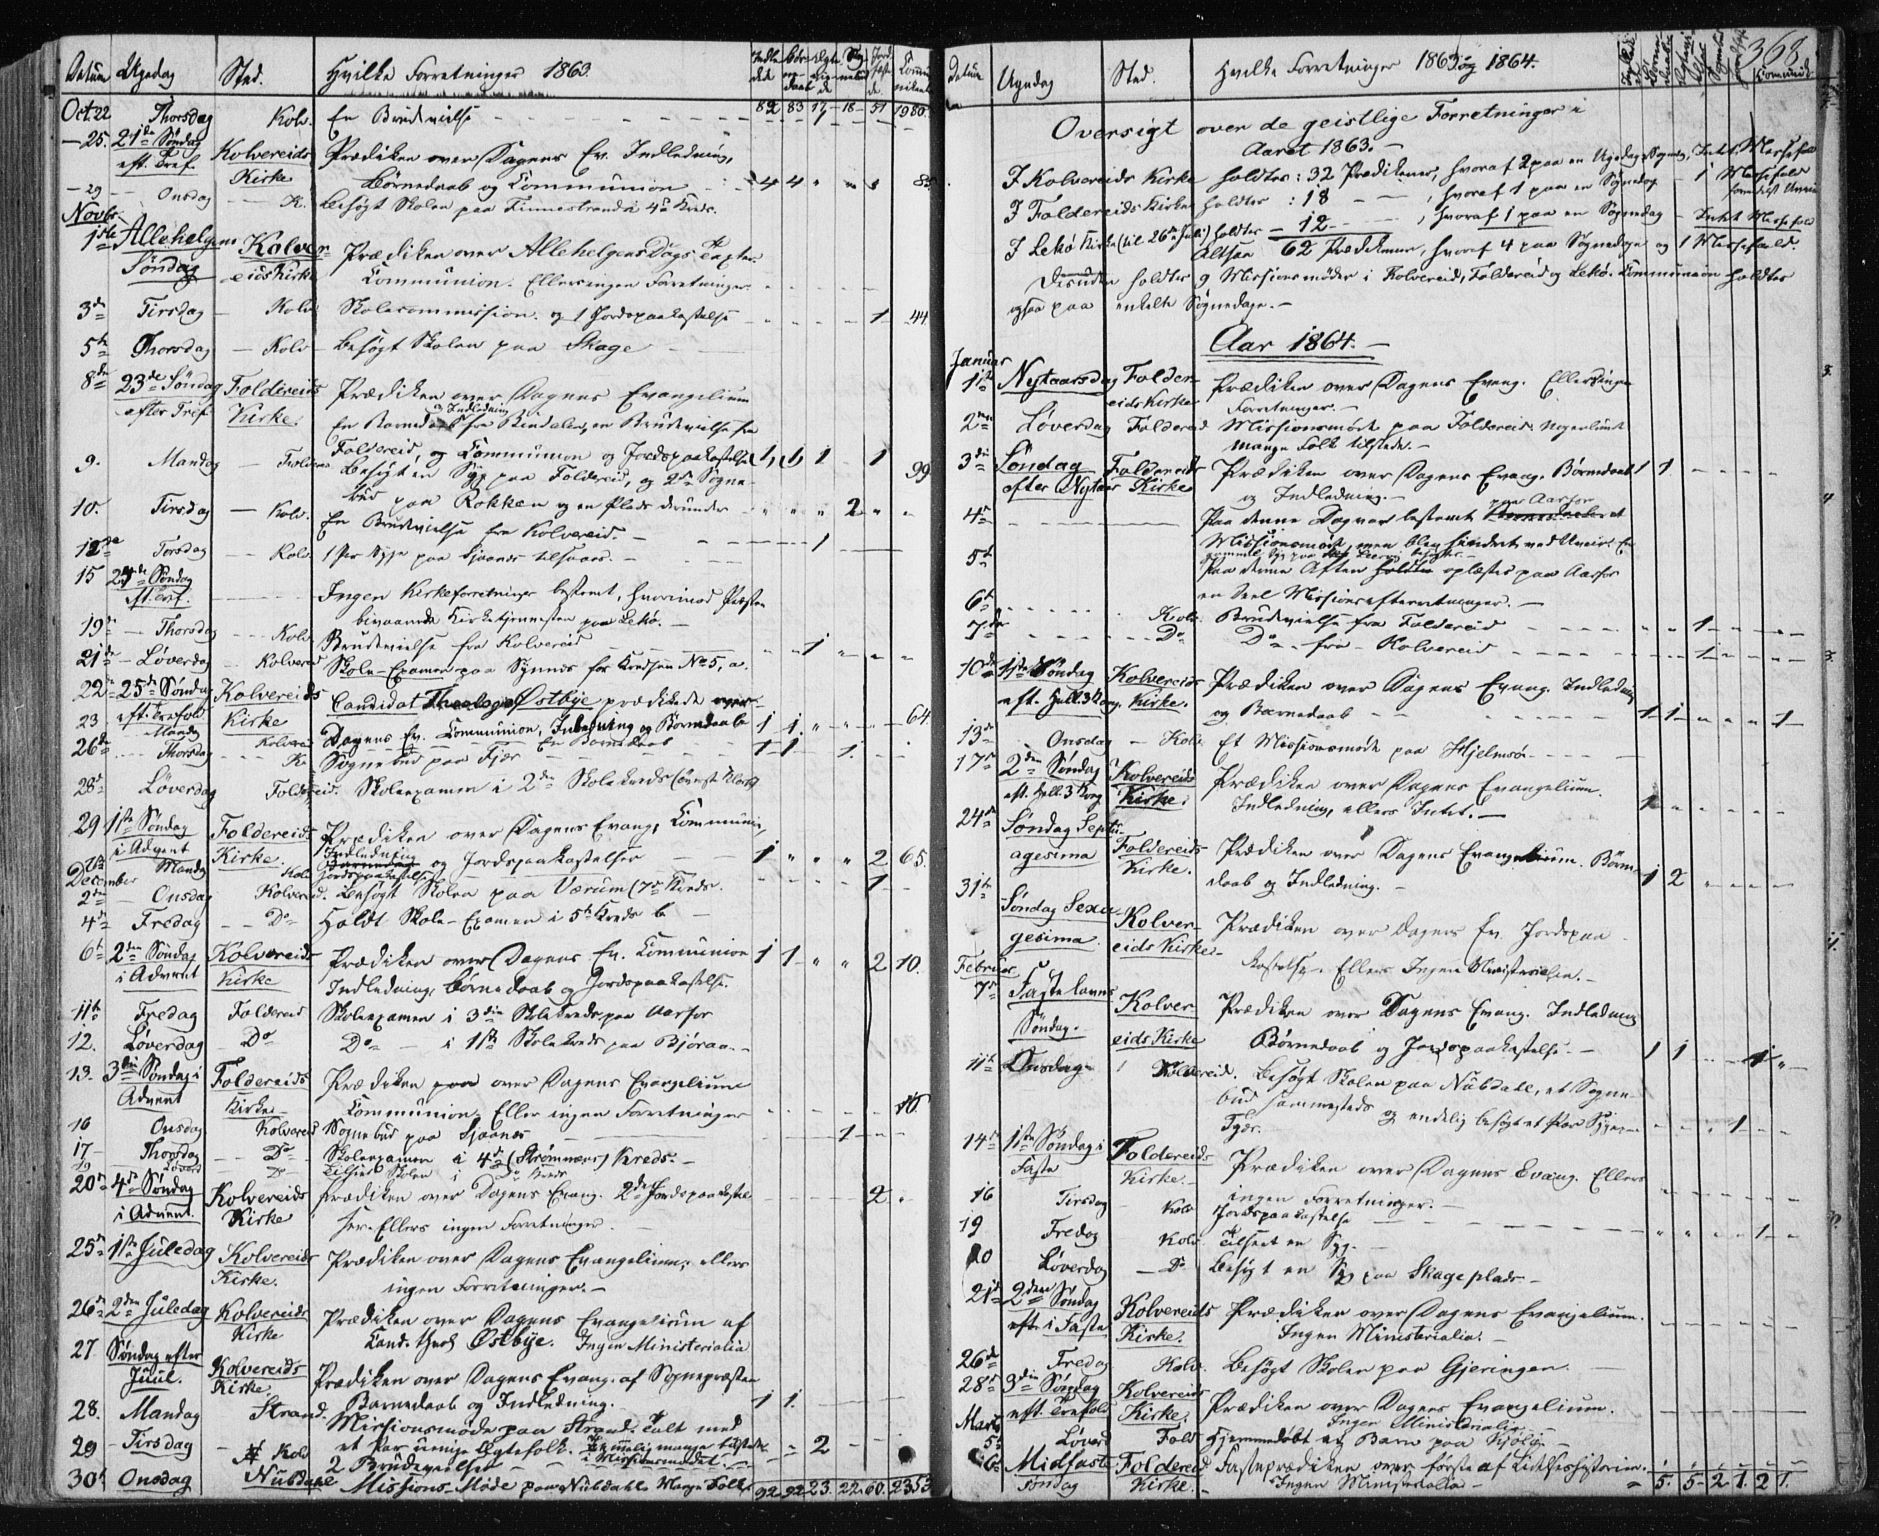 Datum Ugedag Sted. Hvilke Forretninger 1863.
Oct. 22 Thorsdag Kolv. En Brudevielse 82 83 17 18 51 1980
25. 21de Søndag eft. Tref. Kolvereids Kirke Prædiken over Dagens Ev. Indledning,
Børnedaab og Communion 4 4
29 Onsdag K. Besøgt Skolen paa Finnestrand i 4de Kreds.
Novbr.
1ste Allehelgens Søndag Kolvereids Kirke Prædiken over Allehelgens Dags Texter
Communion. Ellers ingen Forretninger
3de Tirsdag Kolv. Skolecommission og 1 Jordspaakastelse 1 44
5te Thorsdag Kolv. Besøgt Skolen paa Skage
8de 23de Søndag efter Tref. Foldereids Kirke. Prædiken over Dagens Evangelium
og Indledning
En Barnedaab fra Bindalen, en Brudevielse fra
Foldereid, og Communion og Jordspaakastelse 1 1 1 1 99
9. Mandag Foldereid Besøgt en Syg paa Foldereid, og 2de Sogne-
bud paa Rokken og en Plads derunder 2
10. Tirsdag Kold. En Brudevielse fra Kolvereid. 1
12te Torsdag Kolv. 1 Par Syge paa Sjaanes tilsaaes.
15 24de Søndag eft. Tref. Ingen Kirkeforretninger bestemt, hvorimod Præsten
bivaanede Kirketjenesten paa Lekø.
19de Thorsdag Kolv. Brudevielse fra Kolvereid 1
21de Løverdag Kolvereid Skole-Examen paa Synnes for Kredsen No 5, a.
22de 25de Søndag eft. Trefold. Kolvereids Kirke Candidat Theologi Østbye prædikede over
Dagens Ev. Communion, Indledning og Barnedaab 1 1 64
23 Mandag Kolvereid En Barnedaab 1 1
26de Thorsdag K. Sognebud paa Fjær 1.
28de Løverdag Foldereid. Skoleexamen i 2den Skolekreds
29 1ste Søndag i Advent Foldereids Kirke. Prædiken over Dagens Evang., Communion,
Indledning og Jordspaakastelser 1 2 65.
Mandag Kolv. Jordspaakastelse 1
December
2den Onsdag Kolvereid. Besøgt Skolen paa Værum (7de Kreds.
4de Fredag Do Holdt Skole-Examen i 5te Kreds b
6te 2den Søndag i Advent Kolvereids Kirke Prædiken over Dagens Ev. Communion 1 1 2 10.
Indledning, Børnedaab og Jordspaakastelse.
11te Fredag Foldereid Skoleexamen i 3die Skolekreds paa Aarfor
12. Løverdag Do Do i 1ste Skolekreds paa Bjøraa.
13. 3die Søndag i Advent Foldereids Kirke Prædiken paa over Dagens Evangelium
Communion, Eller ingen Forretninger
16 Onsdag Kolvereid Sognebud paa Sjaanes 1
17 Thorsdag Do Skoleexamen i 4de (Strømnæs) Kreds.
19 Løverd. Do Tilsiet Skolen i Do Kreds
20de 4de Søndag i Advent. Kolvereids Kirke Prædiken over Dagens Evang. 2de Jordspaakastel- 2
ser. Ellers ingen Forretninger.
25de 1ste Juledag Kolvereids Kirke. Prædiken over Dagens Evangelium, ellers
ingen Forretninger.
26de 2den Juledag Kolvereids Kirke Prædiken over Dagens Evangelium af
Cand. theol. Østbye. Ingen Ministerialia
27 Søndag efter Juul. Kolvereids Kirke. Prædiken over Dagens Evang. af Sognepræsten
Barnedaab og Indledning. 1 1.
28. Mandag Strand. Missionsmøde paa Strand. Talt med
et Par uenige Ægtefolk. temmelig mange tilstede i Missionsmødet.
29 Tirsdag Kolv. 2 Brudevielser 2
30te Onsdag Nubdahl Missions-Møde paa Nubdahl. Mange Folk. 92 92 23. 22. 60. 2353
368.
Datum Ugedag Sted. Hvilke Forretninger 1863 og 1864.
Oversigt over de geistlige Forretninger i
Aaret 1863.
I Kolvereids Kirke holdtes: 32 Prædikener, hvoraf 2 paa en Ugedag, Intet Messefald
I Foldereids Kirke holdtes: 18, hvoraf 1 paa en Søgnedag 1 Messefald
I Lekø Kirke (til 26de Juli) holdtes 12, hvoraf 1 paa en Søgnedag Intet Messefald
Altsaa 62 Prædikener, hvoraf 4 paa Søgnedage og 1 Messefald.
Desuden holdtes 9 Missionsmøder i Kolvereid, Foldereid og Lekø. Communion holdtes
ogsaa paa enkelte Søgnedage.
Aar 1864.
Januar
1ste Nytaarsdag Foldereids Kirke Prædiken over Dagens Evang. Ellers Ingen
Forretninger.
2den Løverdag Foldereid Missionsmøde paa Foldereid
mange Folk tilstede.
3die Søndag efter Nytaar Foldereids Kirke Prædiken over Dagens Evang. Børnedaab 1 1
og Indledning.
4de Paa denne Dag var bestemt paa Aarfor et
Missionsmøde, men blev hindret ved Uveir. En
5te Paa denne Aften oplæstes paa Aarfor
en Deel Missionsefterretninger.
6te Kolv. Brudevielse fra Foldereid 1
7de Do Do fra Kolvereid 1
10de 1ste Søndag eft. Hell. 3 Kong. Kolvereids Kirke. Prædiken over Dagens Evang. Indledning
og Barnedaab 1 1 1
13de Onsdag Kolv. Et Missionsmøde paa Hjelmsø.
17de 2den Søndag eft. Hell. 3 Kong. Kolvereids Kirke. Prædiken over Dagens Evangelium.
Indledning, ellers Intet. 1
24de Søndag Septuagesima Foldereids Kirke. Prædiken over Dagens Evangelium. Børne-
daab og Indledning. 1 2
31te Søndag Sexagesima. Kolvereids Kirke. Prædiken over Dagens Ev. Jordspaa-
kastelse. Ellers Ingen Ministerialia.
Februar
7de Fastelavns Søndag. Kolvereids Kirke Prædiken over Dagens Evang. Indledning
Børnedaab og Jordspaakastelse. 1 1 1
11te Onsdag Kolvereid. Besøgt Skolen paa Nubdale, et Sogne-
bud sammesteds og endelig besøgt et Par Syge paa
Fjær. 1
14de 1ste Søndag i Faste Foldereids Kirke. Prædiken over Dagens Evang. Ellers
ingen Forretninger.
16 Tirsdag Kolv Jordspaakastelse 1
19 Fredag Kolv. Tilseet en Syg.
20 Løverdag Do Besøgt en Syg paa Skageplads
21de 2den Søndag eft. i Faste Kolvereids Kirke. Prædiken over Dagens Evangelium.
Ingen Ministerialia.
26de Fredag Kolv. Besøgt Skolen paa Gjeringen.
28de 3die Søndag Kolvereids Kirke. Prædiken over Dagens Evangelium.
Ingen Ministerialia
Marts
5te Løverd Fold Hjemmedøbt et Barn paa Kjølø
6te Midfaste Søndag Foldereid Kirke. Fasteprædiken over første af Lidelseshistorien.
Ingen Ministerialia 5. 5 2 1. 2 1.